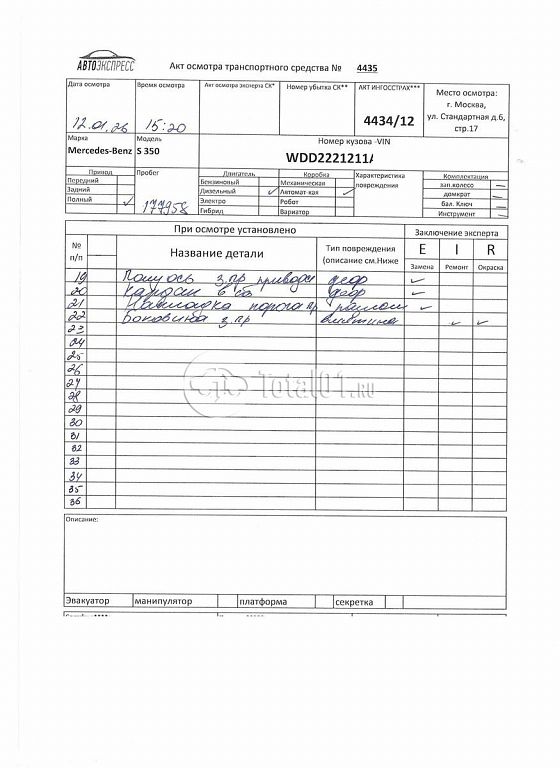 АВТОЭКСПРЕСС
Акт осмотра транспортного средства № 4435
Дата осмотра
12.01.26
Время осмотра
15:20
Акт осмотра эксперта СК*
Номер убытка СК**
АКТ ИНГОССТРАХ***
4434/12
Место осмотра:
г. Москва,
ул. Стандартная д.6,
стр.17
Марка
Mercedes-Benz
Модель
S 350
Номер кузова -VIN
WDD2221211
Привод
Передний
Задний
Полный
Пробег
177958
Двигатель
Бензиновый
Дизельный
Электро
Гибрид
Коробка
Механическая
Автомат-кая
Робот
Вариатор
Характеристика
повреждения
Комплектация
зап.колесо
домкрат
бал. Ключ
Инструмент
При осмотре установлено
Заключение эксперта
№
п/п
Название детали
Тип повреждения
(описание см.Ниже
E I R
Замена Ремонт Окраска
19 Полуось з.пр привода деф
20 Кардан деф
21 Накладка порога пр разлом
22 Боковина з.пр вмятина
23
24
25
26
27
28
29
30
31
32
33
34
35
36
Total01.ru
Описание:
Эвакуатор манипулятор платформа секретка